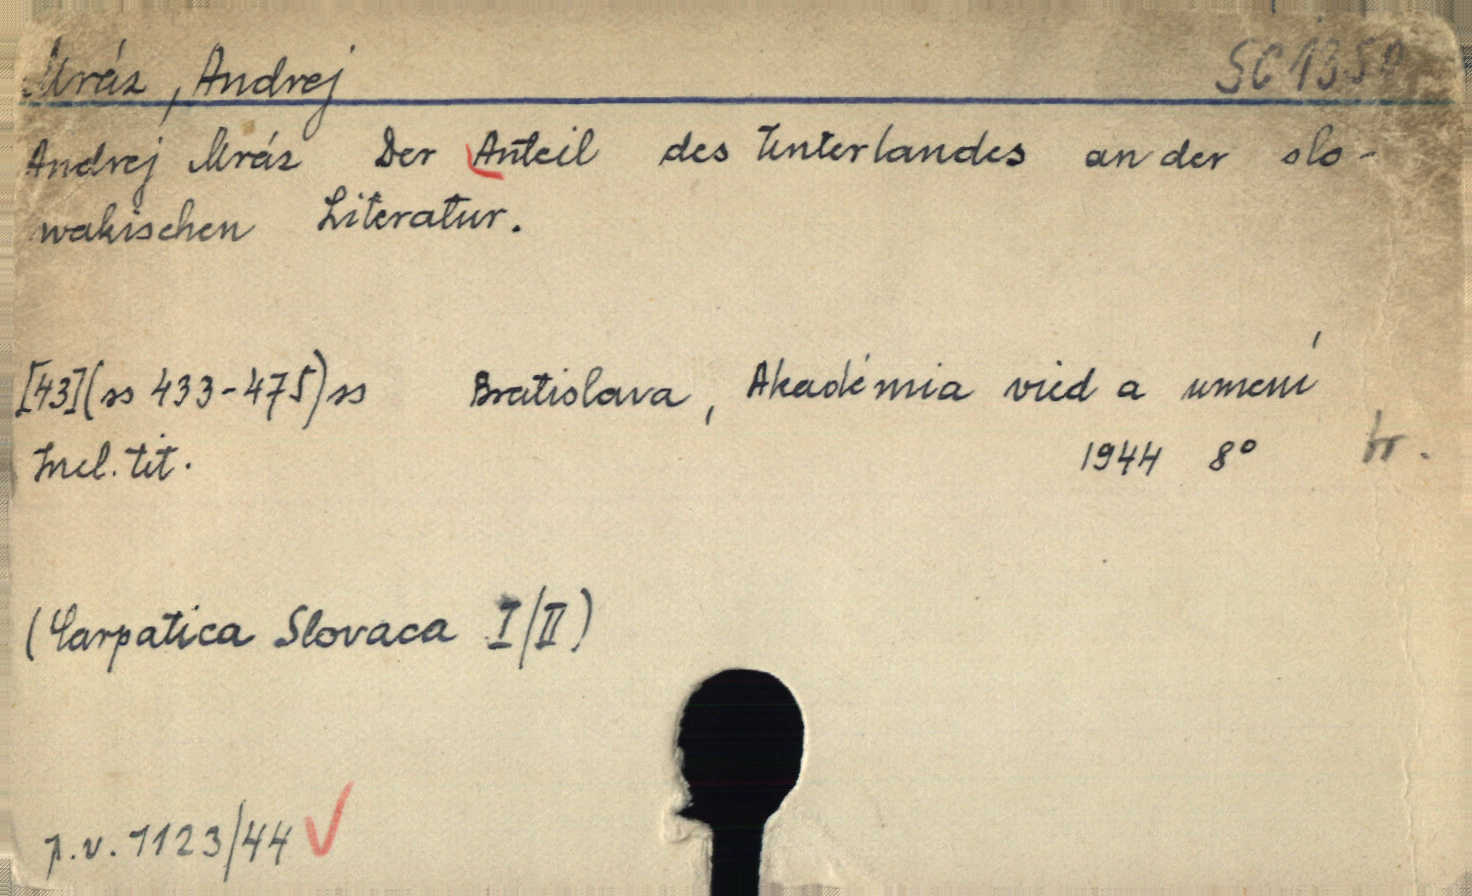 Mráz, Andrej SC 1350
Andrej Mráz Der Anteil des Unterlandes an der slo-
wakischen Literatur.
[43](ss 433-475)ss Bratislava, Akadémia vied a umení
Incl. tit. 1944 8° br.
(Carpatica Slovaca I/II)
p.v. 1123/44